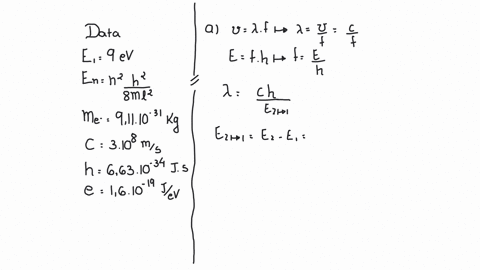 Data
E₁ = 9 eV
Eₙ = n² h²/8ml²
me- = 9,11.10⁻³¹ Kg
C = 3.10⁸ m/s
h = 6,63.10⁻³⁴ J.s
e = 1,6.10⁻¹⁹ J/eV
a) v = λ.f ↦ λ = v/f = c/f
E = f.h ↦ f = E/h
λ = ch/E₂↦₁
E₂↦₁ = E₂ - E₁ =